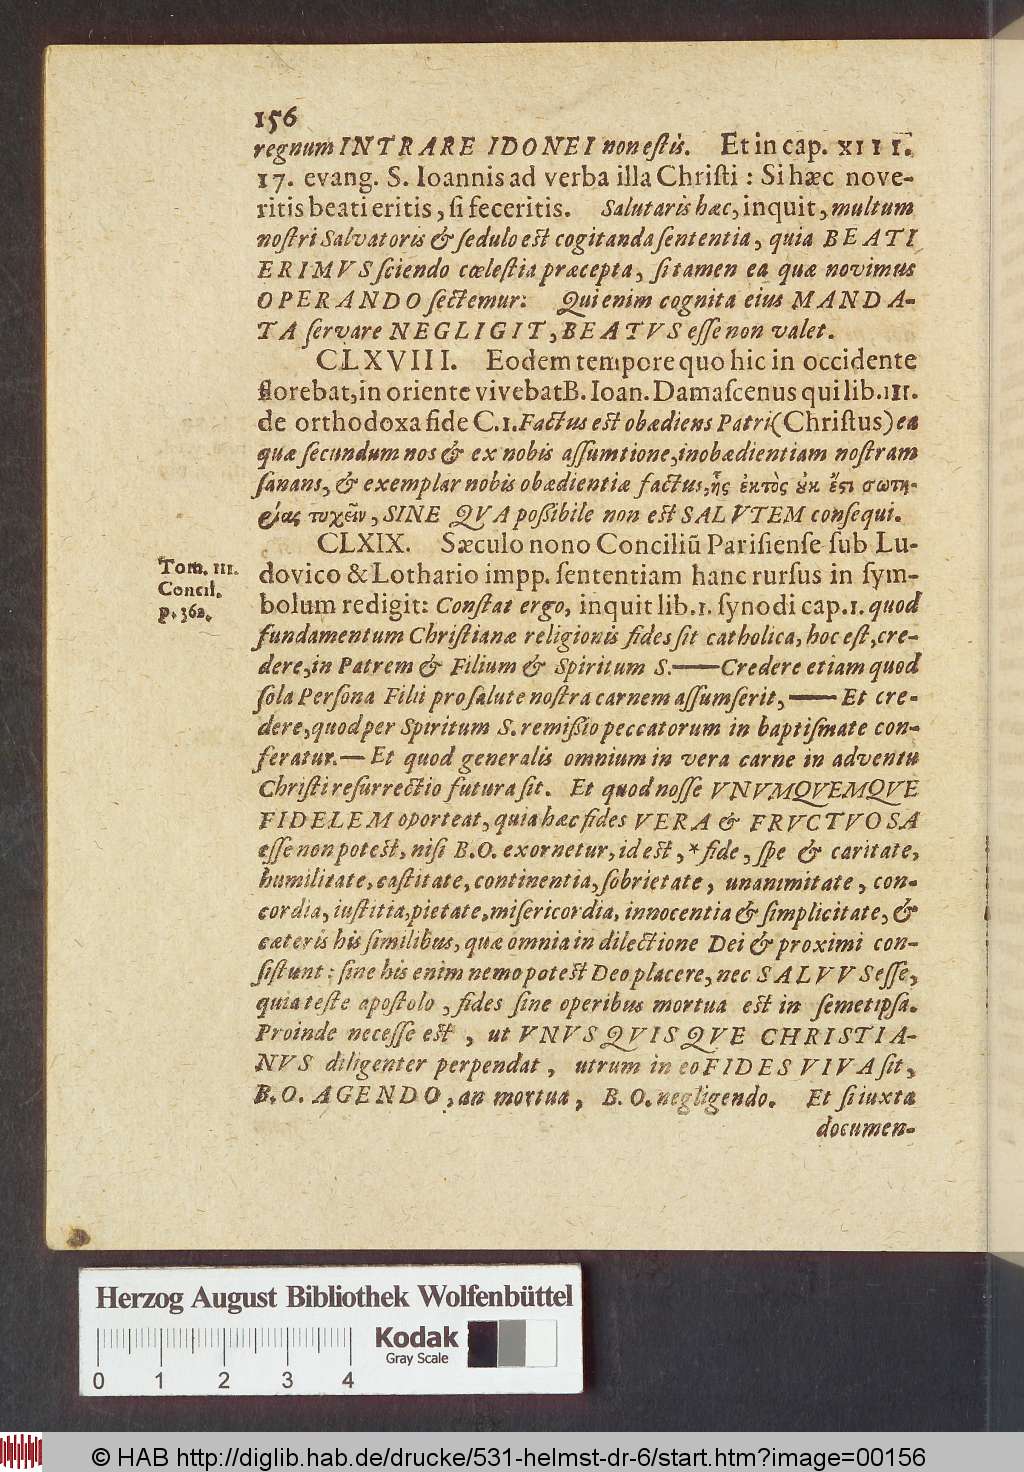 156
regnum INTRARE IDONEI non estis. Et in cap. XIII.
17. evang. S. Ioannis ad verba illa Christi : Si hæc nove-
ritis beati eritis, si feceritis. Salutaris hæc, inquit, multum
nostri Salvatoris & sedulo est cogitanda sententia, quia BEATI
ERIMVS sciendo cœlestia præcepta, si tamen ea quæ novimus
OPERANDO sectemur: Qui enim cognita eius MANDA-
TA servare NEGLIGIT, BEATVS esse non valet.
CLXVIII. Eodem tempore quo hic in occidente
florebat, in oriente vivebat B. Ioan. Damascenus qui lib. III.
de orthodoxa fide C. 1. Factus est obædiens Patri (Christus) ea
quæ secundum nos & ex nobis assumtione, inobædientiam nostram
sanans, & exemplar nobis obædientiæ factus, ἧς ἐκτὸς ȣκ ἔστι σωτη-
ρίας τυχεῖν, SINE QVA possibile non est SALVTEM consequi.
CLXIX. Sæculo nono Conciliū Parisiense sub Lu-
dovico & Lothario impp. sententiam hanc rursus in sym-
bolum redigit: Constat ergo, inquit lib. 1. synodi cap. 1. quod
fundamentum Christianæ religionis fides sit catholica, hoc est, cre-
dere, in Patrem & Filium & Spiritum S. — Credere etiam quod
sola Persona Filii pro salute nostra carnem assumserit, — Et cre-
dere, quod per Spiritum S. remissio peccatorum in baptismate con-
feratur. — Et quod generalis omnium in vera carne in adventu
Christi resurrectio futura sit. Et quod nosse VNVMQVEMQVE
FIDELEM oporteat, quia hæc fides VERA & FRVCTVOSA
esse non potest, nisi B. O. exornetur, id est, * fide, spe & caritate,
humilitate, castitate, continentia, sobrietate, unanimitate, con-
cordia, iustitia, pietate, misericordia, innocentia & simplicitate, &
cæteris his similibus, quæ omnia in dilectione Dei & proximi con-
sistunt : sine his enim nemo potest Deo placere, nec SALVVS esse,
quia teste apostolo, fides sine operibus mortua est in semetipsa.
Proinde necesse est, ut VNVSQVISQVE CHRISTIA-
NVS diligenter perpendat, utrum in eo FIDES VIVA sit,
B. O. AGENDO, an mortua, B. O. negligendo. Et si iuxta
documen-
Tom. III.
Concil.
p. 362.
Herzog August Bibliothek Wolfenbüttel
Kodak
Gray Scale
0 1 2 3 4
© HAB http://diglib.hab.de/drucke/531-helmst-dr-6/start.htm?image=00156